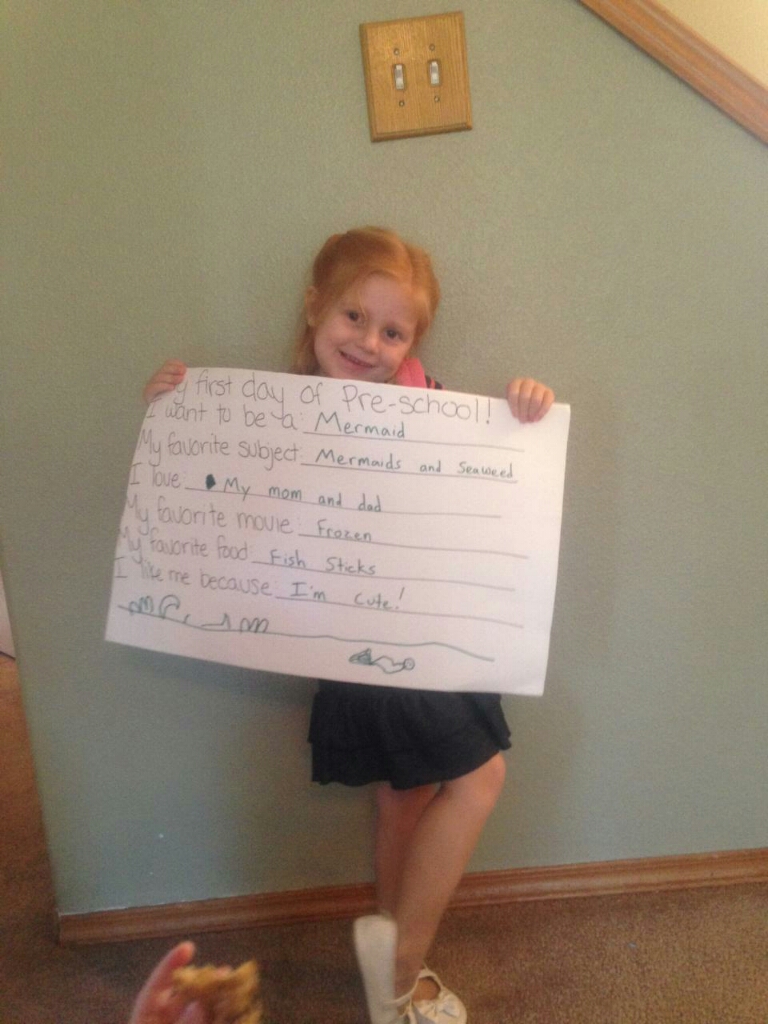 My first day of Pre-school!
I want to be a: Mermaid
My favorite subject: Mermaids and Seaweed
I love: My mom and dad
My favorite movie: Frozen
My favorite food: Fish Sticks
I like me because: I'm cute!